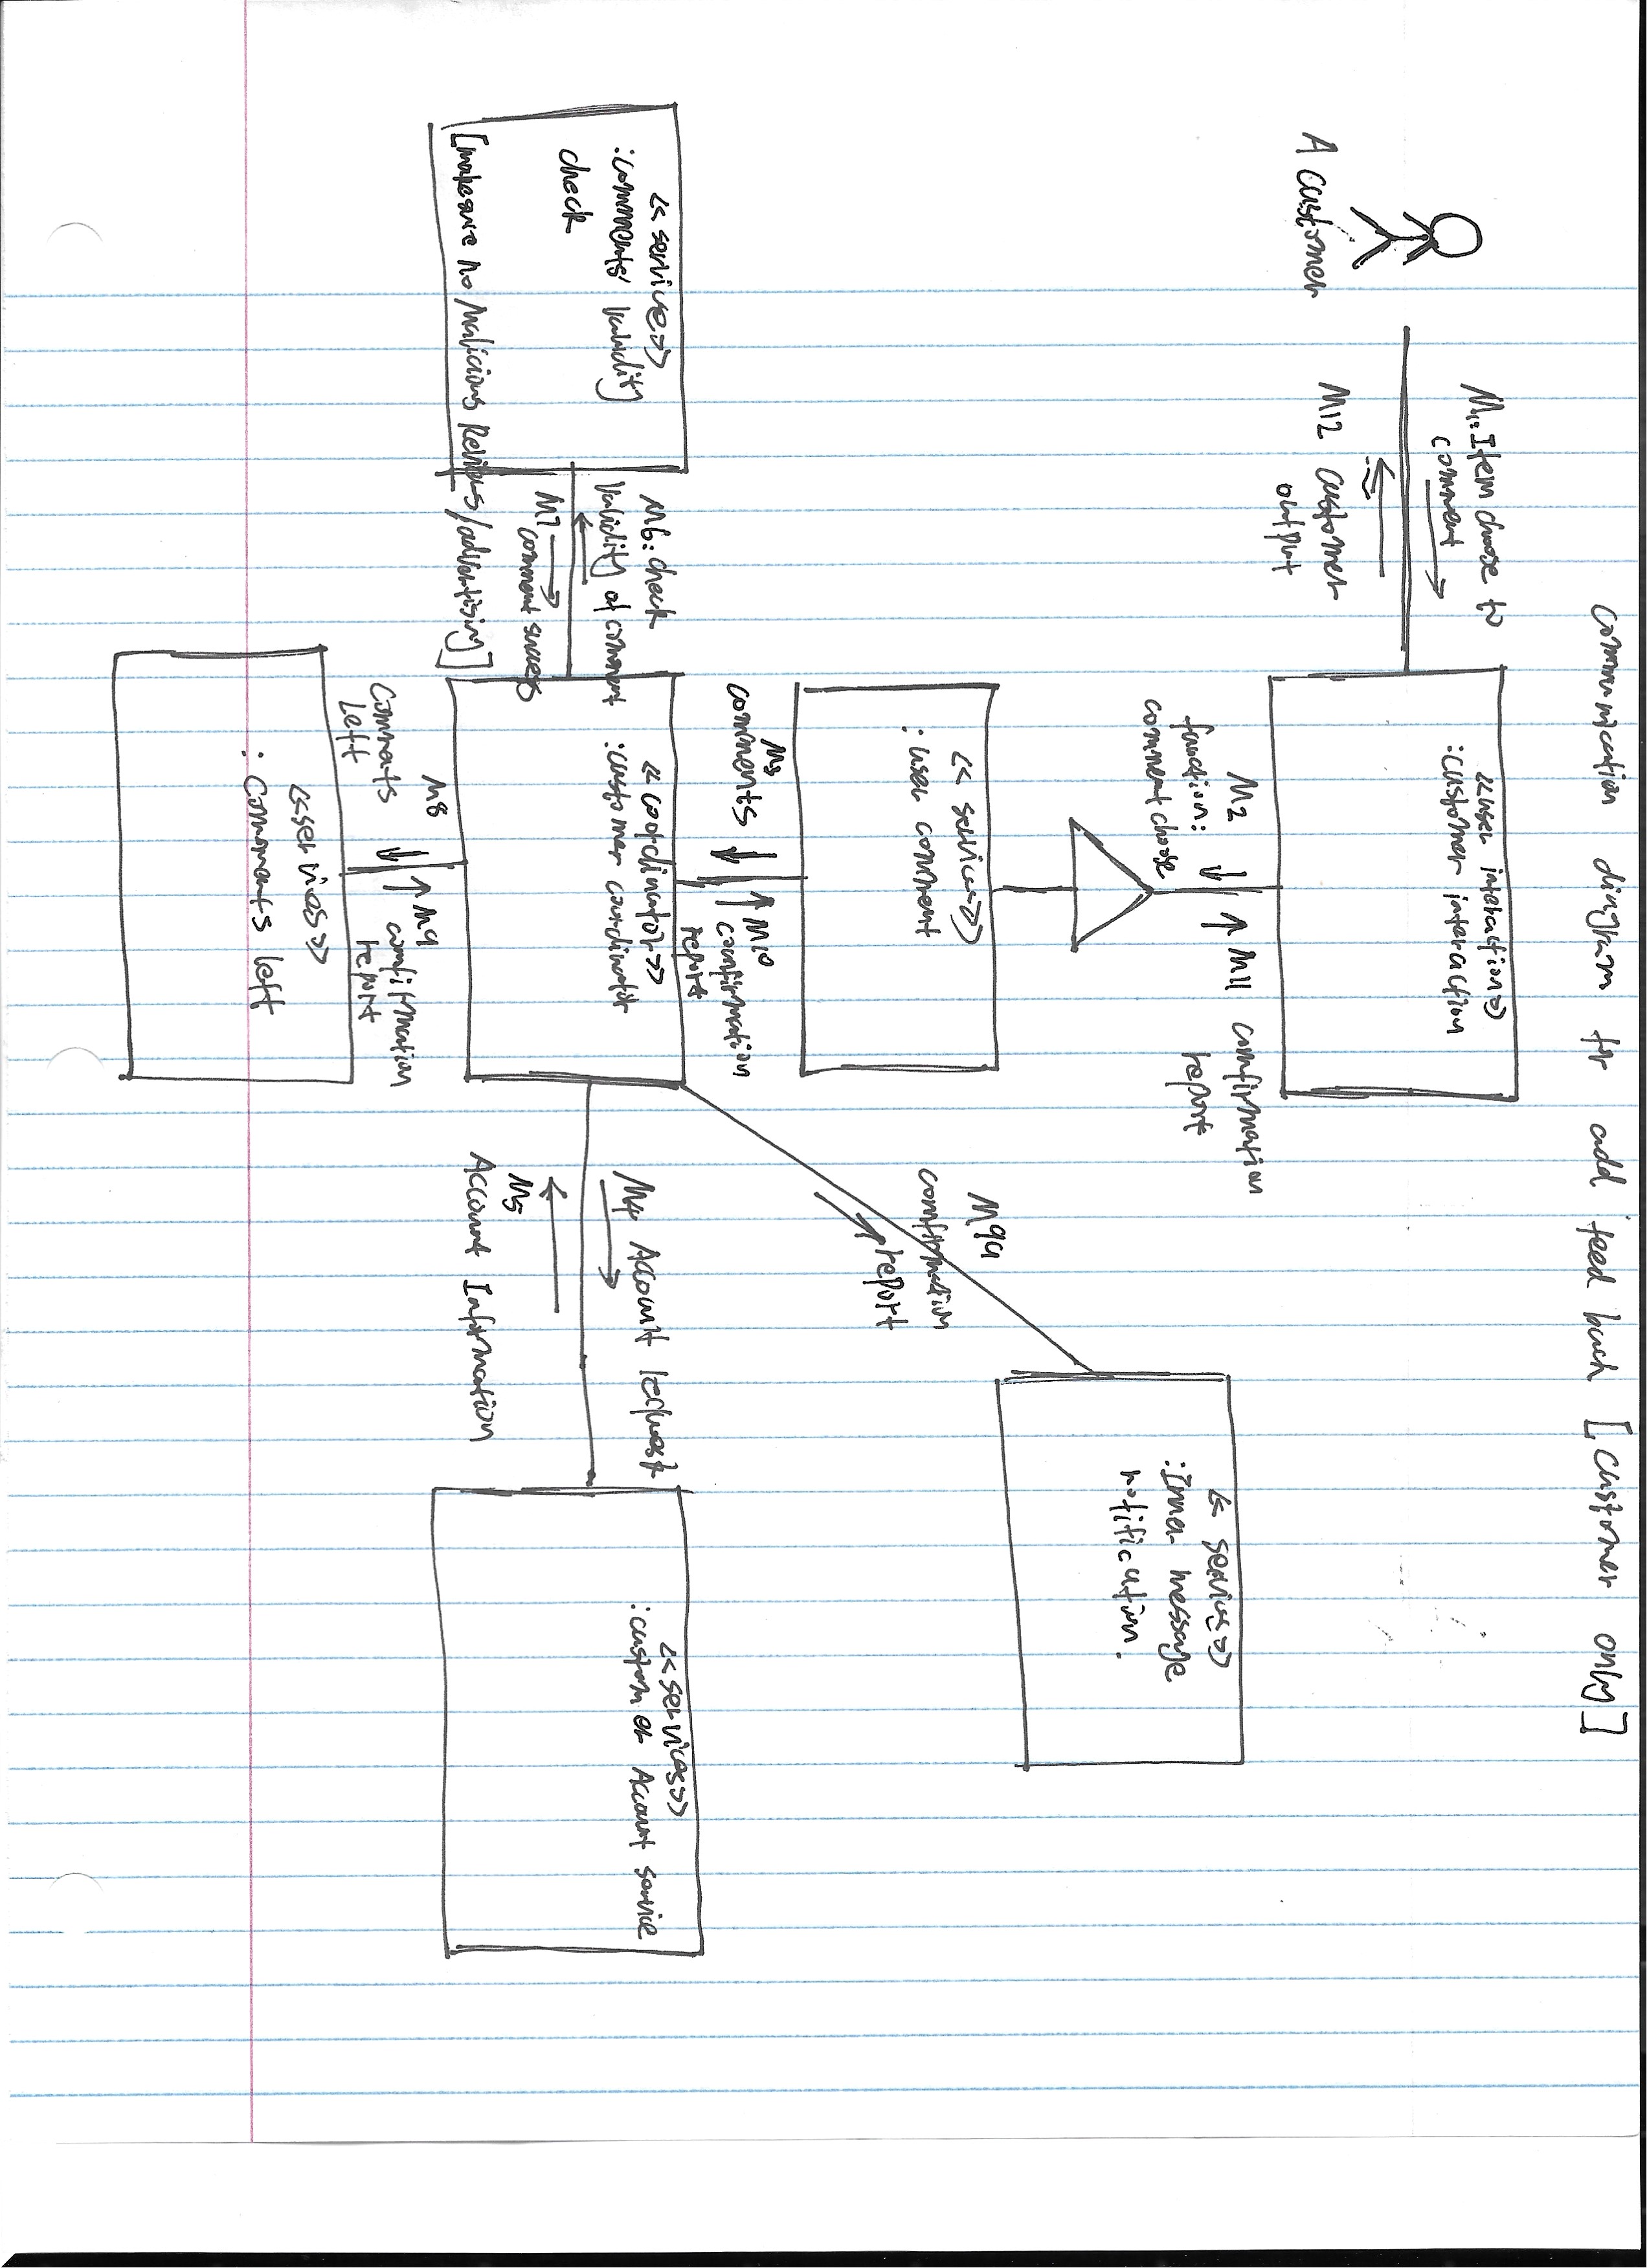 communication diagram for add feed back [customer only]
M1: Item choose to
comment
<<user interaction>>
:customer interaction
A customer
M12 customer
output
M2
function:
comment choose
M11 comfirmation
report
<< services>>
:Inner message
notification.
<< services>>
: user comment
M9a
comfirmation
report
M3
comments
M10
comfirmation
report
<< service>>
:comments' validity
check
[makesure no Malicious Reviews/advertising]
M6: check
validity of comment
M7
comment success
<< coordinator>>
:customer coordinator
M4 Account request
M5
Account Information
<<services>>
:customer Account service
M8
Comments
Left
M9
comfirmation
report
<<services>>
: comments left